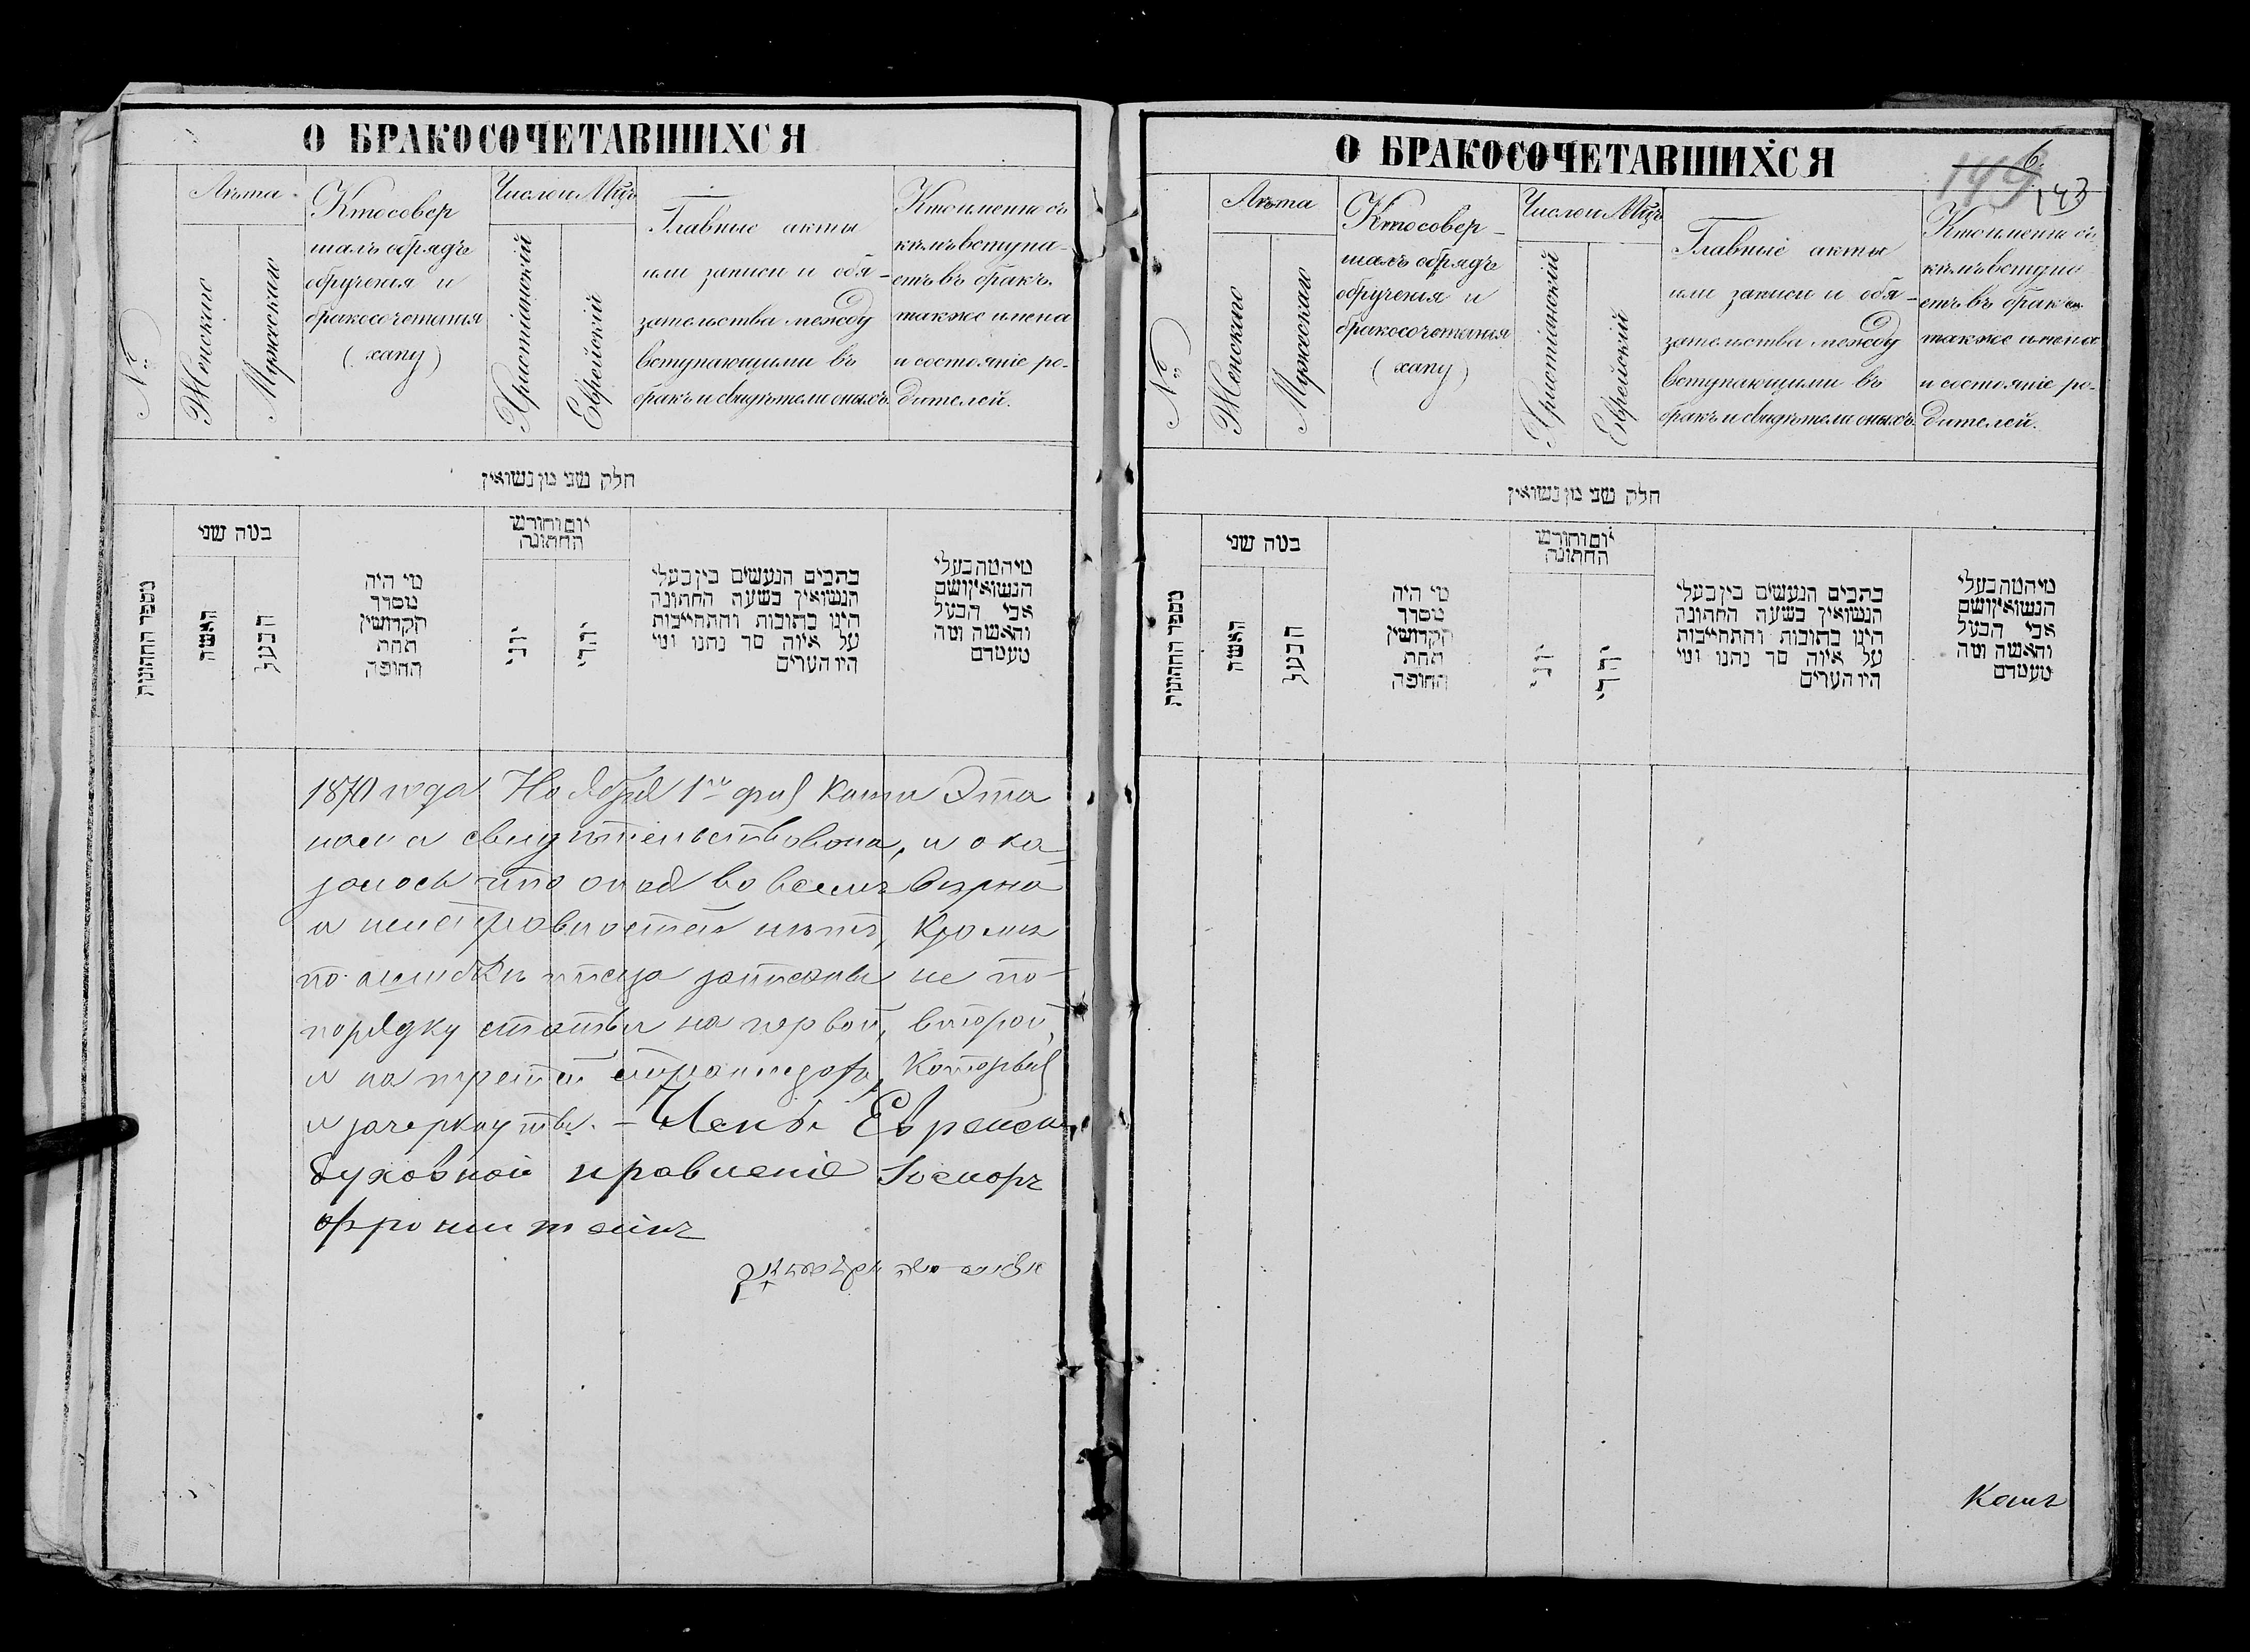 О БРАКОСОЧЕТАВШИХСЯ
№
Лѣта
Женскаго
Мужескаго
Кто совер
шалъ обрядъ
обрученія и
бракосочетанія
(хапу)
Число и Мцъ
Христіанскій
Еврейскій
Главные акты
или записи и обя-
зательства между
вступающими въ
бракъ и свидѣтели оныхъ.
Кто именно съ
кѣмъ вступа-
етъ въ бракъ.
также имена
и состояніе ро-
дителей.
חלק שני מן נשואין
מספר החתונות
כמה שני
האשה
הבעל
מי היה
מסדר
הקדושין
תחת
החופה
יום וחודש
החתונה
יוני
יהדי
כתבים הנעשים בין בעלי
הנשואין בשעה החתונה
היינו כתובות והתחייבות
על איזה סך נתנו ומי
היו העדים
מיהמה בעלי
הנשואין ושם
אבי הבעל
והאשה ומה
מעמדם
1870 года Ноября 1го дня Книга Эта
нами свидѣтельствована, и ока-
залось что оная во всемъ вѣрна
и неисправностей нѣтъ, Кромѣ
по ошибкѣ писца записаны не по-
порядку статьи на первой, второй,
и на третей страницахъ, Которыя
и зачеркнуты. - Членъ Евреск.
духовной правленіе
О БРАКОСОЧЕТАВШИХСЯ
6.
149
143
№
Лѣта
Женскаго
Мужескаго
Кто совер-
шалъ обрядъ
обрученія и
бракосочетанія
(хапу)
Число и Мцъ
Христіанскій
Еврейскій
Главные акты
или записи и обя-
зательства между
вступающими въ
бракъ и свидѣтели оныхъ.
Кто именно съ
кѣмъ вступа-
етъ въ бракъ
также имена
и состояніе ро-
дителей.
חלק שני מן נשואין
מספר החתונות
כמה שני
האשה
הבעל
מי היה
מסדר
הקדושין
תחת
החופה
יום וחודש
החתונה
יוני
יהדי
כתבים הנעשים בין בעלי
הנשואין בשעה החתונה
היינו כתובות והתחייבות
על איזה סך נתנו ומי
היו העדים
מיהמה בעלי
הנשואין ושם
אבי הבעל
והאשה ומה
מעמדם